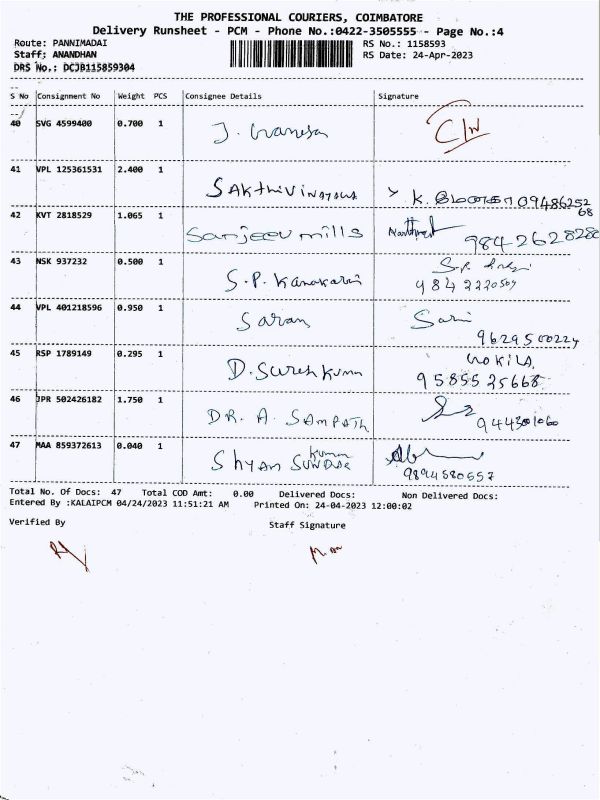 THE PROFESSIONAL COURIERS, COIMBATORE
Delivery Runsheet - PCM - Phone No.:0422-3505555 - Page No.:4
Route: PANNIMADAI RS No.: 1158593
Staff: ANANDHAN RS Date: 24-Apr-2023
DRS No.: DCJB115859304
S No Consignment No Weight PCS Consignee Details Signature
40 SVG 4599400 0.700 1 J. Ganesa
41 VPL 125361531 2.400 1 SAKthiVinayaga
K. 0948625268
42 KVT 2818529 1.065 1 Sanjeev mills
9842628280
43 NSK 937232 0.500 1 S.P. Kanakavi
9842220509
44 VPL 401218596 0.950 1 Saran
9629500224
45 RSP 1789149 0.295 1 D. Suresh Kumar KOKILA
9585525668
46 JPR 502426182 1.750 1 DR. A. SAMPATH
944301060
47 MAA 859372613 0.040 1 Shyam SUNDAR kumar
9894580557
Total No. Of Docs: 47 Total COD Amt: 0.00 Delivered Docs: Non Delivered Docs:
Entered By :KALAIPCM 04/24/2023 11:51:21 AM Printed On: 24-04-2023 12:00:02
Verified By Staff Signature